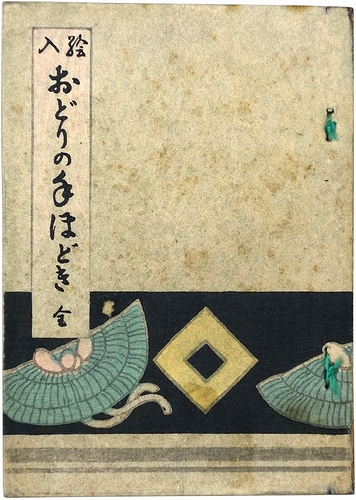 絵入
おどりの手ほどき 全